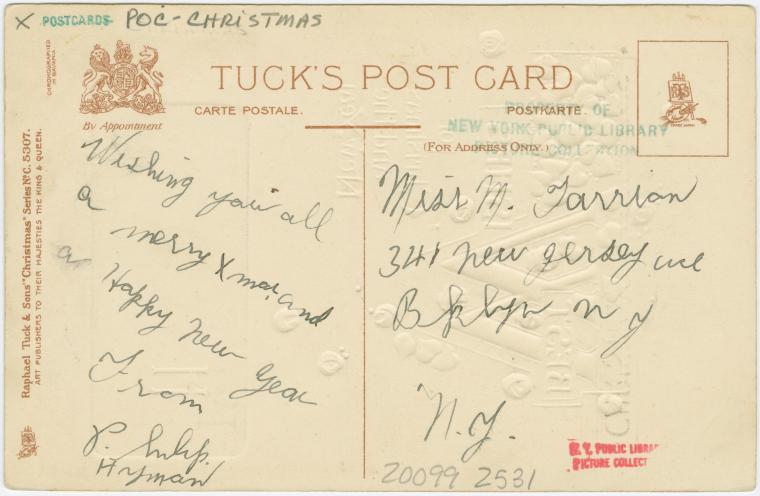 X POSTCARDS POC-CHRISTMAS
CHROMOGRAPHED
IN BAVARIA
By Appointment
TUCK'S POST CARD
CARTE POSTALE.
POSTKARTE.
(FOR ADDRESS ONLY.)
PROPERTY OF
NEW YORK PUBLIC LIBRARY
PICTURE COLLECTION
Raphael Tuck & Sons' "Christmas" Series No C. 5307.
ART PUBLISHERS TO THEIR MAJESTIES THE KING & QUEEN.
Wishing you all
a merry Xmas. and
a Happy New Year
From
Philip.
Hyman
Miss M. Farrian
341 New Jersey ave
Bklyn N Y
N.Y.
20099 2531
N.Y. PUBLIC LIBRAR
PICTURE COLLECT